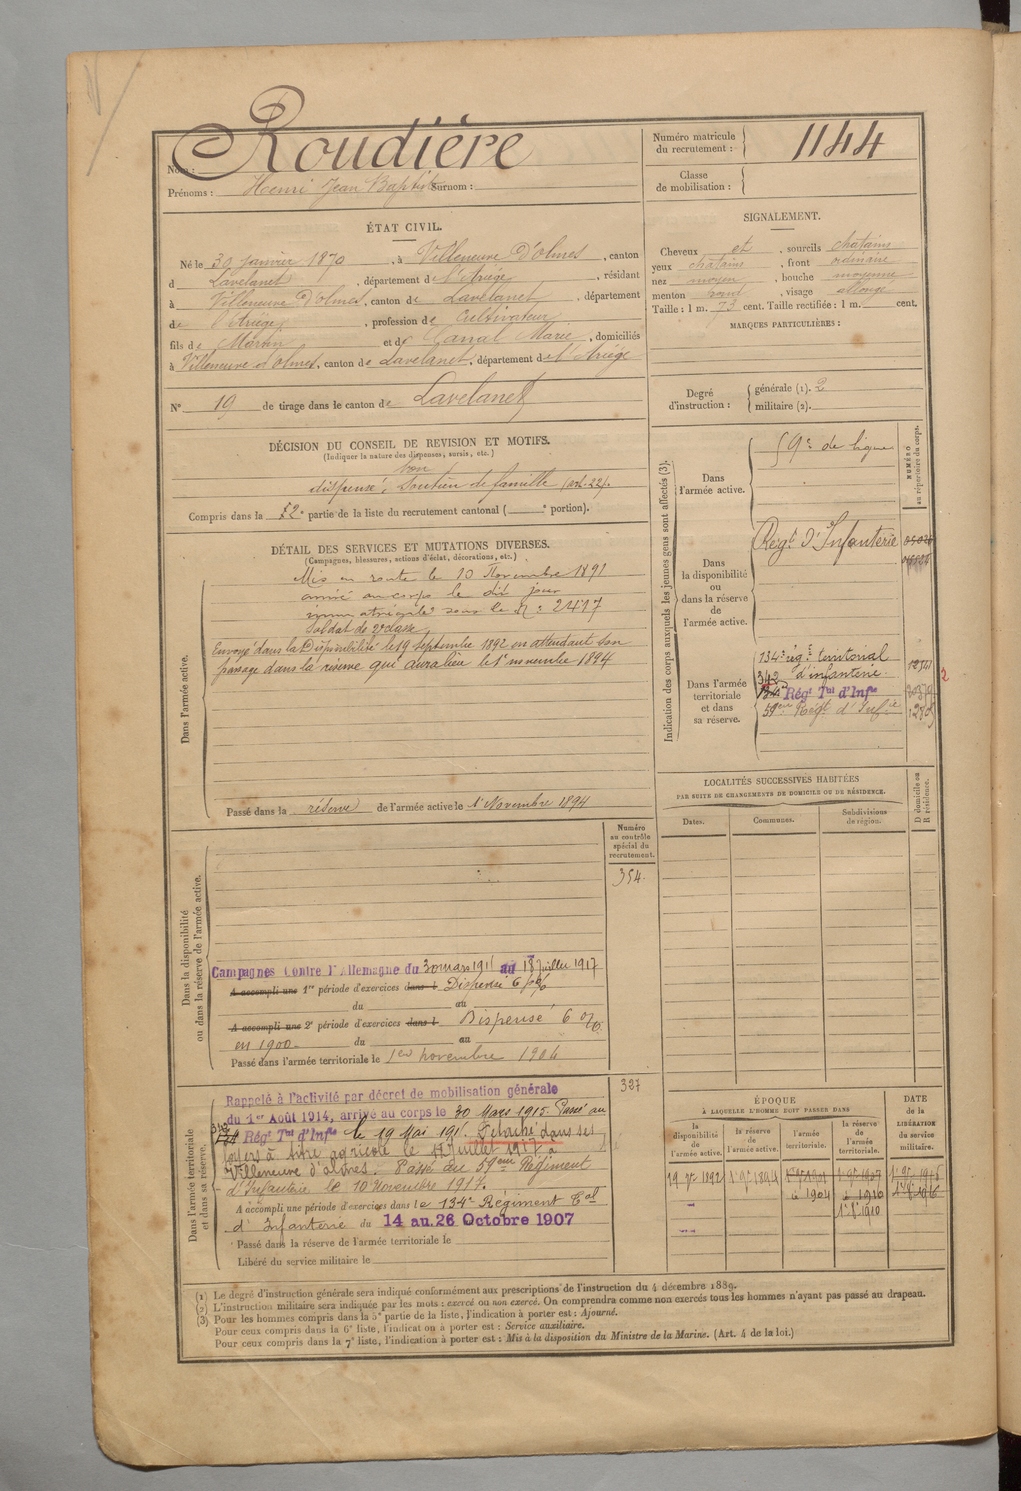 Nom : Roudière
Prénoms : Henri Jean Baptiste Surnom :
Numéro matricule du recrutement : 1144
Classe de mobilisation :
ÉTAT CIVIL.
Né le 30 janvier 1870, à Villeneuve D'olmes, canton
d Lavelanet, département de l'Ariége, résidant
à Villeneuve D'olmes, canton de Lavelanet, département
de l'Ariége, profession de Cultivateur
fils de et de Marie, domiciliés
à Villeneuve d'olmes, canton de Lavelanet, département de l'Ariége
N° 19 de tirage dans le canton de Lavelanet
SIGNALEMENT.
Cheveux et, sourcils chatains
yeux chatains, front ordinaire
nez moyen, bouche moyenne
menton rond, visage allongé
Taille : 1 m. 73 cent. Taille rectifiée : 1 m. cent.
MARQUES PARTICULIÈRES :
Degré d'instruction : générale (1). 2
militaire (2).
DÉCISION DU CONSEIL DE REVISION ET MOTIFS.
(Indiquer la nature des dispenses, sursis, etc.)
bon
dispensé, Soutien de famille (art. 22).
Compris dans la 2e partie de la liste du recrutement cantonal ( e portion).
DÉTAIL DES SERVICES ET MUTATIONS DIVERSES.
(Campagnes, blessures, actions d'éclat, décorations, etc.)
Dans l'armée active.
Mis en route le 10 Novembre 1891
arrivé au corps le dit jour
immatriculé sous le n° 2417
Soldat de 2e classe
Envoyé dans la Disponibilité le 19 septembre 1892 en attendant son
passage dans la réserve qui aura lieu le 1er novembre 1894
Passé dans la réserve de l'armée active le 1er Novembre 1894
Indication des corps auxquels les jeunes gens sont affectés (3).
NUMÉRO au répertoire du corps.
Dans l'armée active.
59e de ligne
Dans la disponibilité ou dans la réserve de l'armée active.
Régt D'Infanterie
Dans l'armée territoriale et dans sa réserve.
134e rég. territorial
d'infanterie.
Régt Tal d'Infie
59eme Régt d'Infie
2
LOCALITÉS SUCCESSIVES HABITÉES
PAR SUITE DE CHANGEMENTS DE DOMICILE OU DE RÉSIDENCE.
Dates.
Communes.
Subdivisions de région.
D domicile ou R résidence.
Numéro au contrôle spécial du recrutement.
354.
Dans la disponibilité ou dans la réserve de l'armée active.
Campagnes Contre l'Allemagne du 30 mars 191 au juillet 1917
A accompli une 1re période d'exercices dans l Dispensé 6 %
du au
A accompli une 2e période d'exercices dans l Dispensé 6 %
en 1900. du au
Passé dans l'armée territoriale le 1er novembre 1904
327
Dans l'armée territoriale et dans sa réserve.
Rappelé à l'activité par décret de mobilisation générale
du 1er Août 1914, arrivé au corps le 30 Mars 1915. Passé au
Régt Tal d'Infie le 19 Mai 191. Détaché dans ses
foyers à titre agricole le juillet 1917 à
Villeneuve d'olmes. Passé au 59eme Régiment
d'Infanterie le 10 Novembre 1917.
A accompli une période d'exercices dans le 134e Régiment Tal
d'Infanterie du 14 au 26 Octobre 1907
Passé dans la réserve de l'armée territoriale le
Libéré du service militaire le
ÉPOQUE
À LAQUELLE L'HOMME DOIT PASSER DANS
la disponibilité de l'armée active.
la réserve de l'armée active.
l'armée territoriale.
la réserve de l'armée territoriale.
DATE de la LIBÉRATION du service militaire.
19 7re 1892
1er 9re 1894
1904
1er 9re 1907
1910
1916
(1) Le degré d'instruction générale sera indiqué conformément aux prescriptions de l'instruction du 4 décembre 1889.
(2) L'instruction militaire sera indiquée par les mots : exercé ou non exercé. On comprendra comme non exercés tous les hommes n'ayant pas passé au drapeau.
(3) Pour les hommes compris dans la 5e partie de la liste, l'indication à porter est : Ajourné.
Pour ceux compris dans la 6e liste, l'indication à porter est : Service auxiliaire.
Pour ceux compris dans la 7e liste, l'indication à porter est : Mis à la disposition du Ministre de la Marine. (Art. 4 de la loi.)